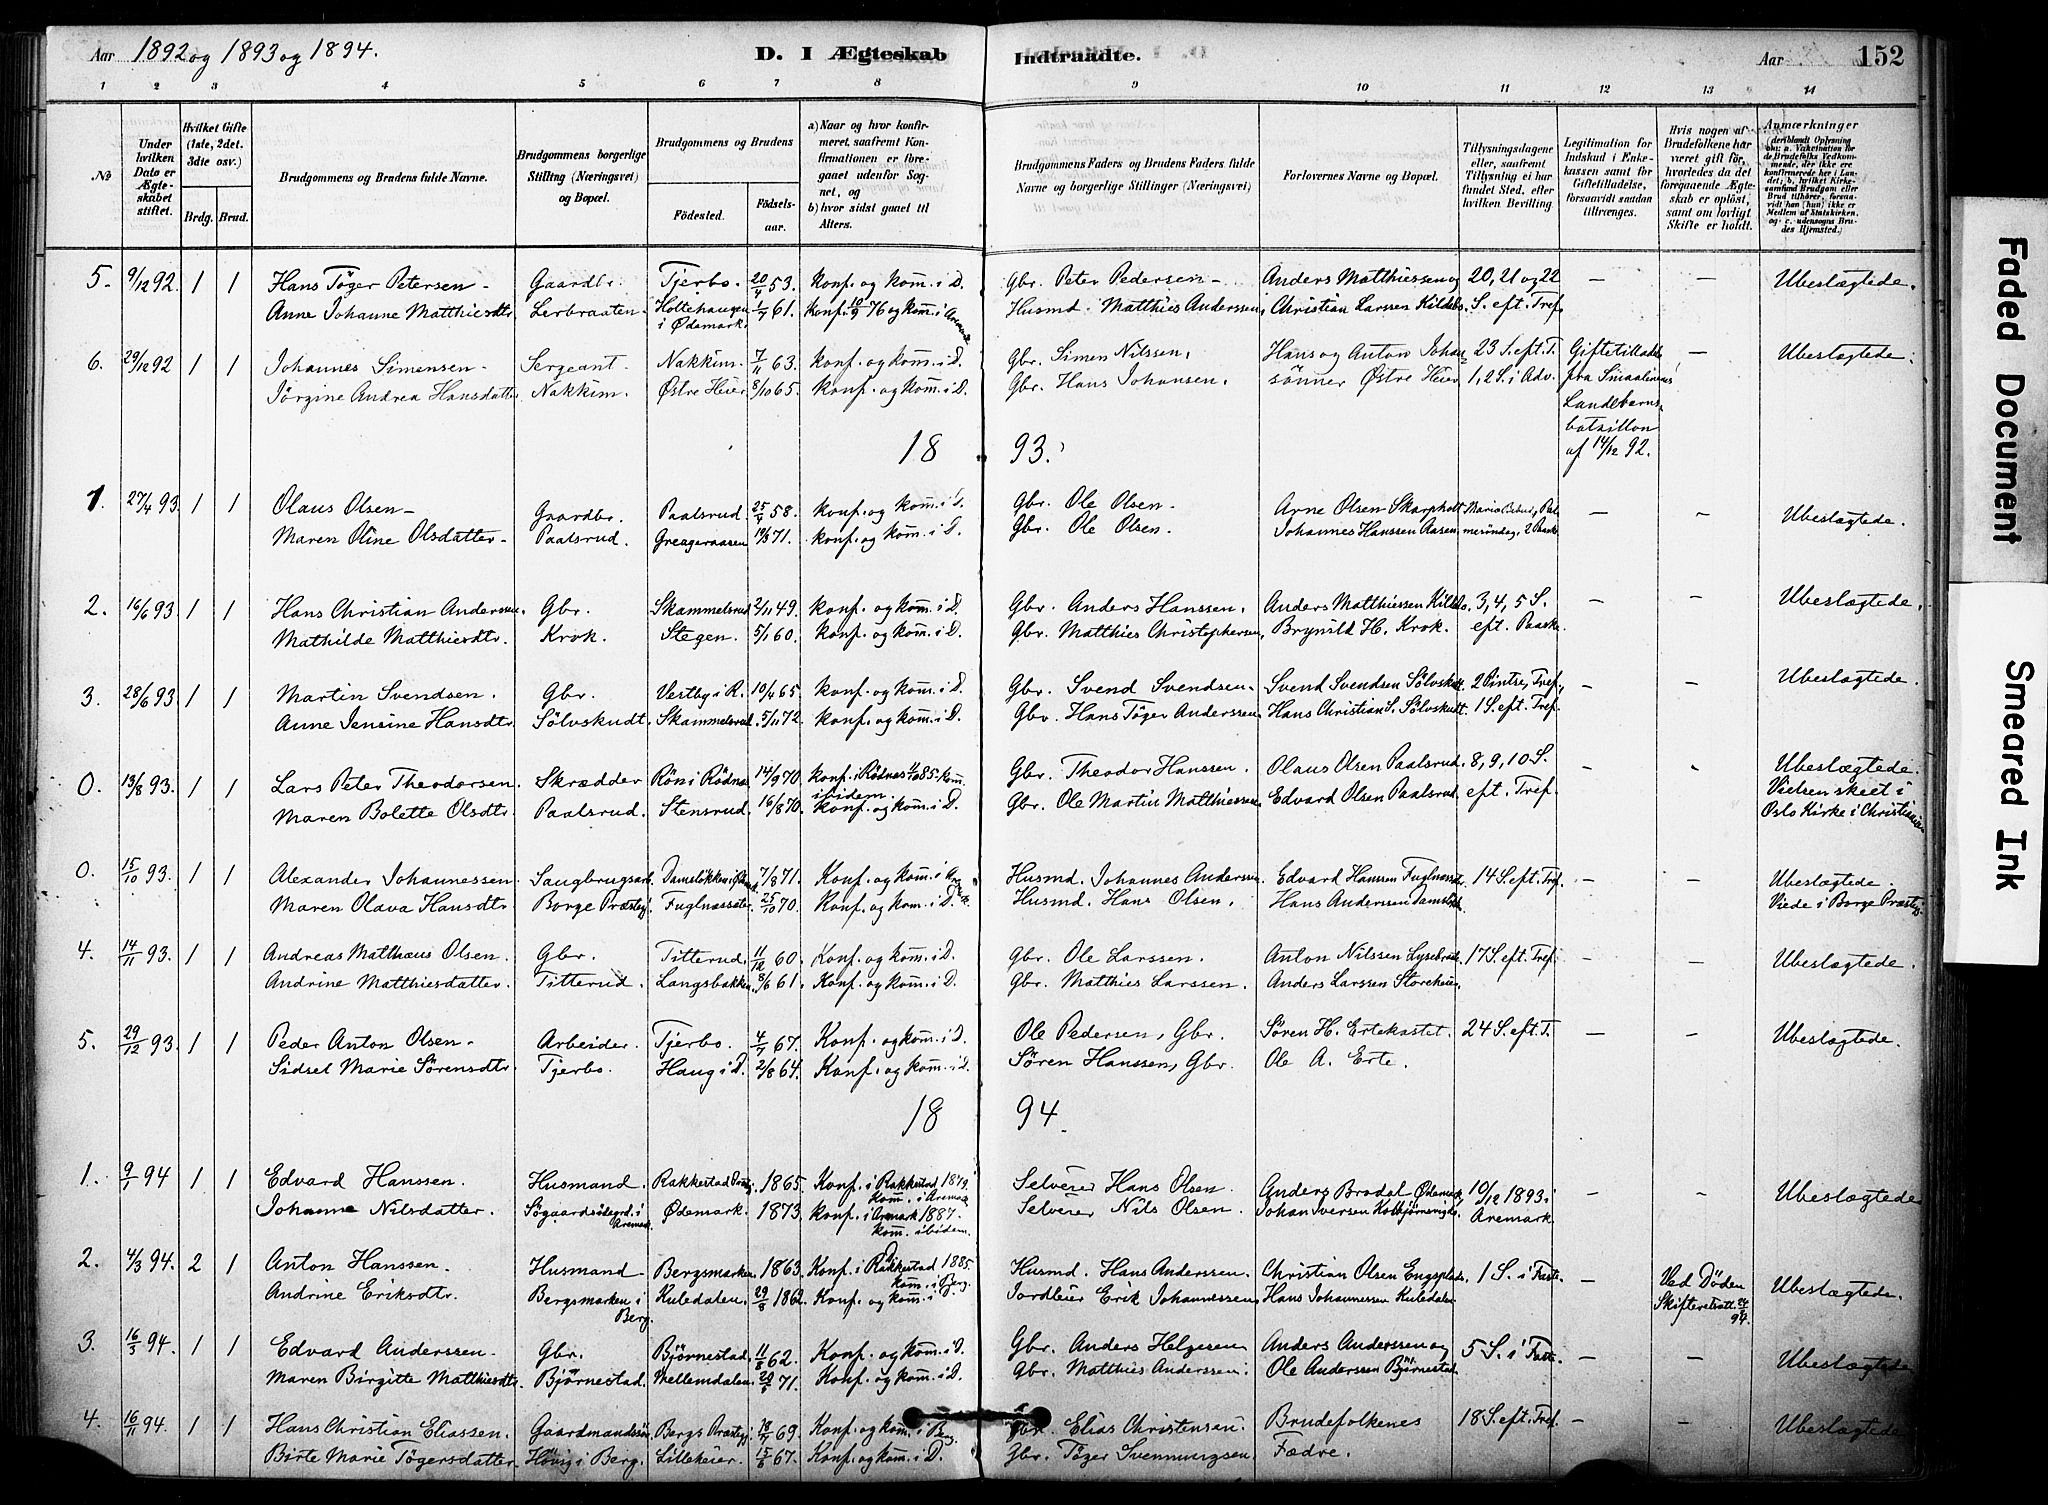 Aar 1892 og 1893 og 1894.
D. I Ægteskab Indtraadte.
Aar 152
1 2 3 4 5 6 7 8 9 10 11 12 13 14
No
Under hvilken Dato er Ægteskabet stiftet.
Hvilket Gifte (1ste, 2det. 3die osv.)
Brdg. Brud.
Brudgommens og Brudens fulde Navne.
Brudgommens borgerlige Stilling (Næringsvei) og Bopæl.
Brudgommens og Brudens
Fødested. Fødselsaar.
a) Naar og hvor konfirmeret, saafremt Konfirmationen er foregaaet udenfor Sognet, og
b) hvor sidst gaaet til Alters.
Brudgommens Faders og Brudens Faders fulde Navne og borgerlige Stillinger (Næringsvei)
Forlovernes Navne og Bopæl.
Tillysningsdagene eller, saafremt Tillysning ei har fundet Sted, efter hvilken Bevilling
Legitimation for Indskud i Enkekassen samt for Giftetilladelse, forsaavidt saadan tiltrænges.
Hvis nogen af Brudefolkene har været gift før, hvorledes da det foregaaende Ægteskab er opløst, samt om lovligt Skifte er holdt.
Anmærkninger
5. 9/12 92 1 1 Hans Töger Petersen Gaardbr. Tjerbo. 20/4 53. konf. og kom. i D. Gbr. Peter Pedersen Anders Matthiessen og 20, 21 og 22 — — Ubeslægtede.
Anne Johanne Matthiesdtr Lerbraaten Holtehaugen i Ødemark 1/7 61. Konf. 10/9 76 og kom. i Aremark Husmd. Matthies Anderssen, Christian Larssen Kildebo. S. eft. Tref.
6. 29/12 92 1 1 Johannes Simensen Sergeant Nakkim. 7/11 63. konf. og kom. i D. Gbr. Simen Nilssen, Hans og Anton Johan 23 S. eft. T. Giftetillad. — Ubeslægtede.
Jörgine Andrea Hansdatter Nakkim. Østre Heier 8/10 65. konf. og kom. i D. Gbr. Hans Johansen. sönner Østre Heier 1, 2 S. i Adv. fra Smaalenenes
Landeværns
bataillon
af 14/12 92.
18 93.
1. 27/4 93. 1 1 Olaus Olsen Gaardbr. Paalsrud. 25/4 58. konf. og kom. i D. Gbr. Ole Olsen. Arne Olsen Skarpholt — — Ubeslægtede.
Maren Oline Olsdatter Paalsrud. Greageraasen konf. og kom. i D. Gbr. Ole Olsen. Johannes Hanssen Aasen
2. 16/6 93. 1 1 Hans Christian Anderssen Gbr. Skammelsrud 2/11 49. konf. og kom. i D. Gbr. Anders Hanssen. Anders Matthiessen Kildebo. 3, 4, 5 S. — — Ubeslægtede.
Mathilde Matthiesdtr. Krok. Stegen. 5/1 60. konf. og kom. i D. Gbr. Matthies Christophersen, Brynild H. Krok. eft. Paaske.
3. 28/6 93. 1 1 Martin Svendsen. Gbr. Vestby i R. 10/4 65. konf. og kom. i D. Gbr. Svend Svendsen Svend Svendsen Sölvskudt. 2 Pintse, Tref., Ubeslægtede.
Anne Jensine Hansdtr. Sölvskudt. Skammelsrud. 5/11 72. konf. og kom. i D. Gbr. Hans Töger Anderssen, Hans Christian S. Sölvskudt. 1 S. eft. Tref.
0. 13/8 93. 1 1 Lars Peter Theodorsen Skrædder Röni Rödnæs 14/9 70. konf. i Rödnæs 85. kom. ibidem. Gbr. Theodor Hanssen. Olaus Olsen Paalsrud. 8, 9, 10 S. — — Ubeslægtede.
Maren Bolette Olsdtr. Paalsrud. Stensrud. 16/8 70. konf. og kom. i D. Gbr. Ole Martin Matthiessen Edvard Olsen Paalsrud. eft. Tref. Vielsen skeet i
Oslo Kirke i Christiania
0. 15/10 93. 1 1 Alexander Johannessen Saugbrugsarb. 7/8 71. Konf. og kom. i Husmd. Johannes Anderssen Edvard Hanssen 14 S. eft. Tref. — — Ubeslægtede.
Maren Olava Hansdtr. Borge Præstgj. Fuglnæssæter 25/10 70. Konf. og kom. i D. Husmd. Hans Olsen, Hans Anderssen Viede i Borge Præstgj.
4. 14/11 93. 1 1 Andreas Mathæus Olsen. Gbr. Titterud. 11/12 60. Konf. og kom. i D. Gbr. Ole Larssen. Anton Nilssen 17 S. eft. Tref. — — Ubeslægtede.
Andrine Matthiesdatter. Titterud. Langsbakken. 8/6 61. Konf. og kom. i D. Gbr. Matthies Larssen. Anders Larssen Storeheier.
5. 29/12 93. 1 1 Peder Anton Olsen Arbeider. Tjerbo. 4/7 67. Konf. og kom. i D. Ole Pedersen, Gbr. Sören H. Ertekastet. 24 S. eft. T. — — Ubeslægtede.
Sidsel Marie Sörensdtr. Tjerbo. Haug i D. 2/8 64. Konf. og kom. i D. Sören Hanssen, Gbr. Ole A. Erte.
18 94.
1. 9/1 94 1 1 Edvard Hanssen. Husmand. Rakkestad 1865. Konf. i Rakkestad 1879. kom. i Aremark Selveier Hans Olsen. Anders Brodal Ødemark, 10/12 1893 i — — Ubeslægtede
Johanne Nilsdatter. Aremark. Ødemark. 1873. konf. i Aremark 1887. kom. ibidem. Selveier Nils Olsen. Johan Iversen Aremark.
2. 4/3 94. 2 1 Anton Hanssen. Husmand Bergsmarken 1863. Konf. i Rakkestad 1885. kom. i Berg. Husmd. Hans Anderssen. Christian Olsen Engsplads. 1 S. i Faste. — Ved Döden Ubeslægtede.
Andrine Eriksdtr. Bergsmarken i Berg. Kuledalen. 29/8 1862. Konf. og kom. i D. Jordleier Erik Johannessen, Hans Johannessen Kuledalen Skifteretsatt. 24/2 94.
3. 16/5 94. 1 1 Edvard Anderssen Gbr. Bjørnestad. 11/8 62. Konf. og kom. i D. Gbr. Anders Helgesen Anders Anderssen og 5 S. i Faste. — — Ubeslægtede
Maren Birgitte Matthiesdtr. Bjørnestad. Mellemdalen. 20/5 71. Konf. og kom. i D. Gbr. Matthies Anderssen. Ole Anderssen Bjørnestad
4. 16/11 94. 1 1 Hans Christian Eliassen. Gaardmandssön Bergs Præstgj. 69. Konf. og kom. i Berg. Gbr. Elias Christensen. Brudefolkenes 18 S. eft. Tref. — — Ubeslægtede
Birte Marie Tögersdatter. Høvig i Berg. Lilleheier. 15/6 67. Konf. og kom. i D. Gbr. Töger Svenningsen Fædre.
Faded Document
Smeared Ink